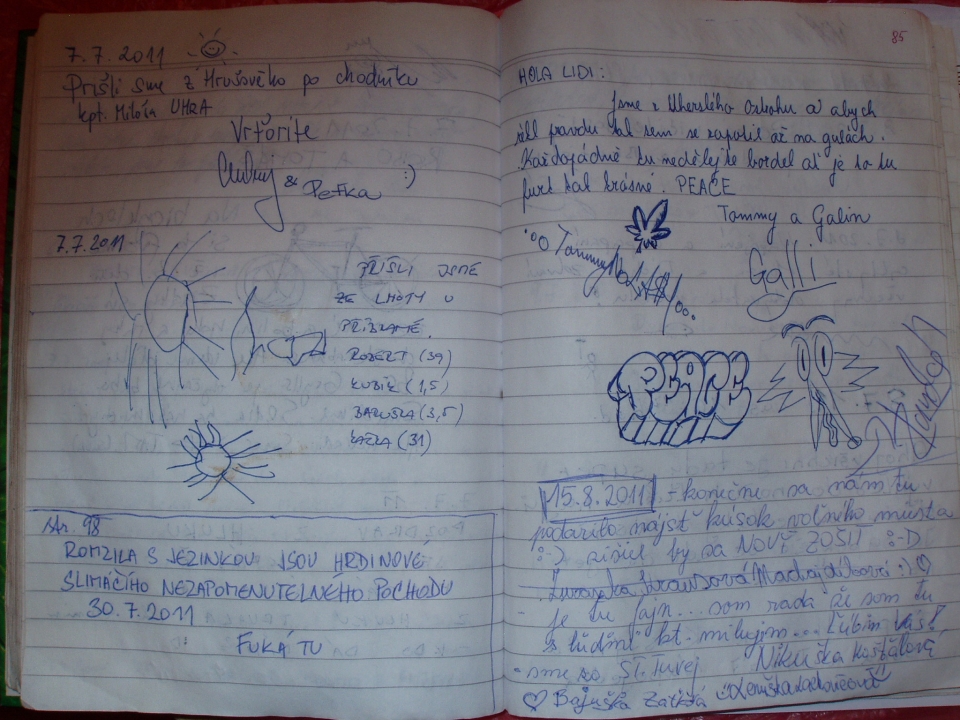 7.7.2011
Prišli sme z Hrušového po chodníku
kpt. Miloša UHRA
Vrtorite
&
Peťka
:)
7.7.2011
PŘIŠLI JSME
ZE LHOTY U
PŘÍBRAMĚ.
ROBERT (39)
KUBÍK (1,5)
BARUŠKA (3,5)
KAČKA (31)
str. 98
ROMZILA S JEZINKOU JSOU HRDINOVÉ
SLIMÁČÍHO NEZAPOMENUTELNÉHO POCHODU
30.7.2011
FUKÁ TU
85
HOLA LIDI:
Jsme z Uherského Ostrohu a abych
řekl pravdu tak sem se zapotil až na gulách.
Každopádně tu nedělejte bordel ať je to tu
furt tak krásné. PEACE
Tammy a Galin
Tammy
Galli
PEACE
15.8.2011 - konečne sa nám tu
podarilo nájsť kúsok voľného miesta
:-) zišiel by sa NOVÝ ZOŠIT :-D
:) ♡
- je tu fajn... som rada že som tu
s ľuďmi kt. milujem... Ľúbim Vás!
- sme zo St. Turej Nikuška Košťálová
♡ Bajuška